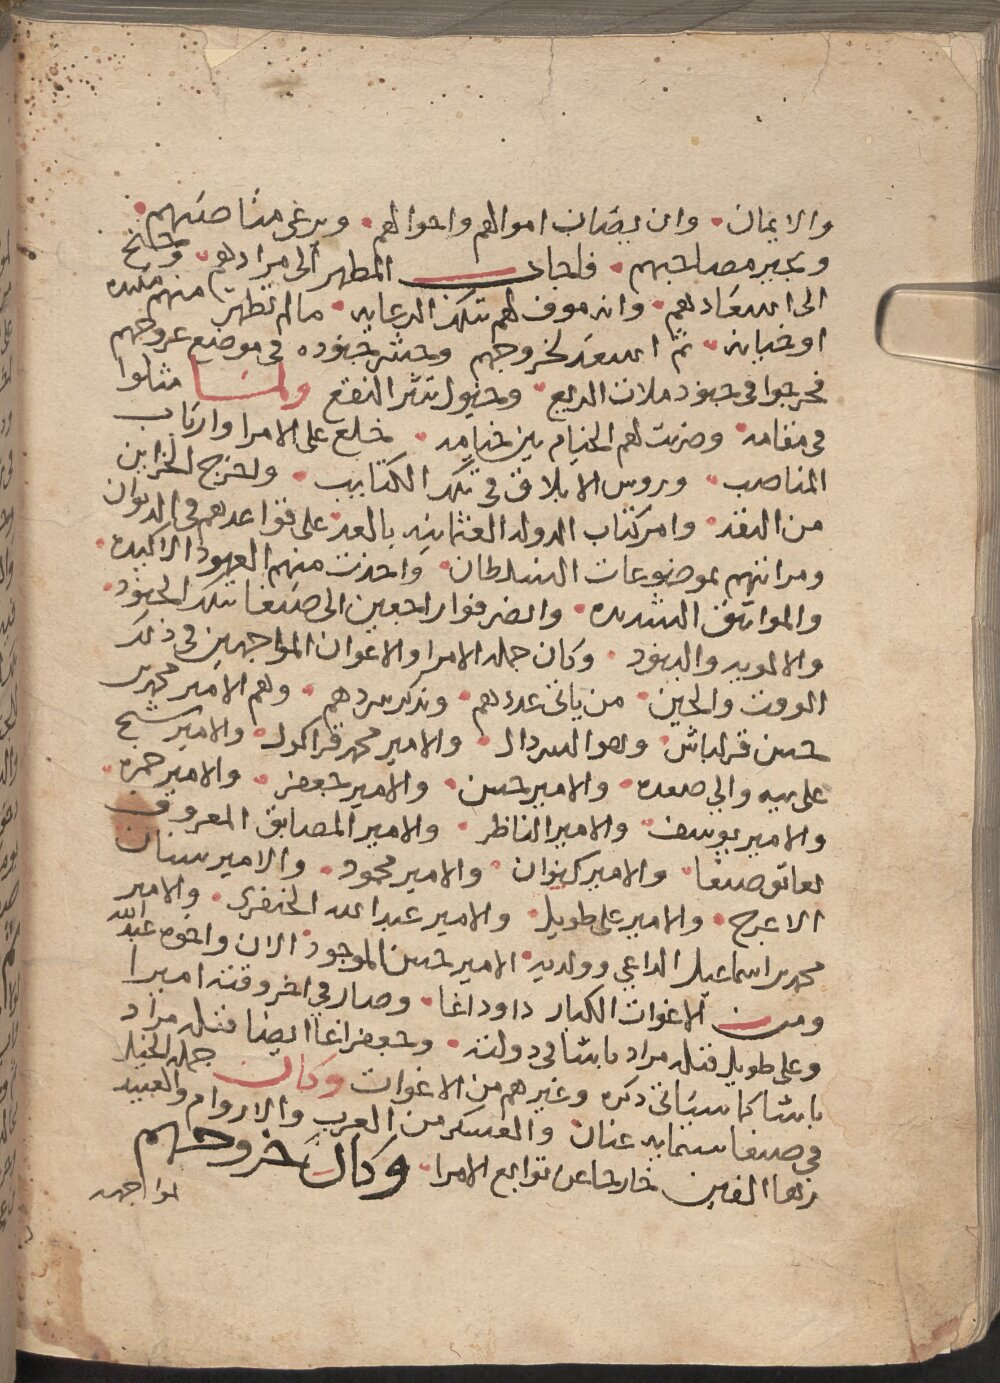 والايمان • وان يصان اموالهم واحوالهم • ويرعى مناصبهم •
ويجبر مصاحبهم • فاجاب المطهر الى مرادهم • وجنح
الى اسعادهم • وانه موف لهم بتلك الرعايه • ما لم تظهر منهم مكيده
او خيانه • ثم استعد لخروجهم وحشر جنوده في موضع عروجهم
فخرجوا في جنود ملات الربع • وخيول تثر النقع ولما مثلوا
في مقامه • وضربت لهم الخيام بين خيامه • خلع على الامرا وارباب
المناصب • وروس الابلاق في تلك الكتايب • واخرج الخزاين
من النقد • وامر كتاب الدوله العثمانيه بالعد • على قواعدهم في الديوان
ومراتبهم بموضوعات السلطان • واخذت منهم العهود الاكيده •
والمواثيق الشديده • وانصرفوا راجعين الى صنعا بتلك الجنود •
والالويه والبنود • وكان جمله الامرا والاعوان المواجهين في ذلك
الوقت والحين • من ياتي عددهم • ونذكر سردهم • وهم الامير محمد بن
حسن قزلباش • وهو السردال • والامير محمد قرا كوله • والامير شيخ
علي بيه والي صعده • والامير حسن • والامير جعفر • والامير حمزه •
والامير يوسف • والامير الناظر • والامير المصابق المعروف
بعاتق صنعا • والامير كيوان • والامير محمود • والامير سنان
الاعرج • والامير علي طويل • والامير عبد الله الخنفري • والامير
محمد بن اسماعيل الداعي وولديه • الامير حسن الموجود الان واخوه عبد الله
ومن الاغوات الكبار داود اغا • وصار في اخر وقته اميرا
وعلي طويل قتله مراد باشا في دولته • وجعفر اغا ايضا قتله مراد
باشا كما سياتي ذكره وغيرهم من الاغوات وكان جمله الخيل
في صنعا ستمايه عنان • والعسكر من العرب والاروام والعبيد
زها الفين خارجا عن توابع الامرا • وكان خروجهم
لمواجهه